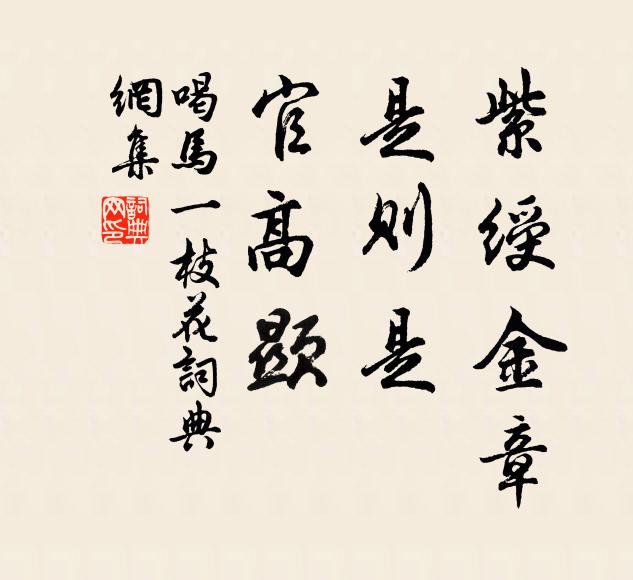 紫綬金章
是則是
官高顯
喝馬一枝花詞典
網集
詞典
网印